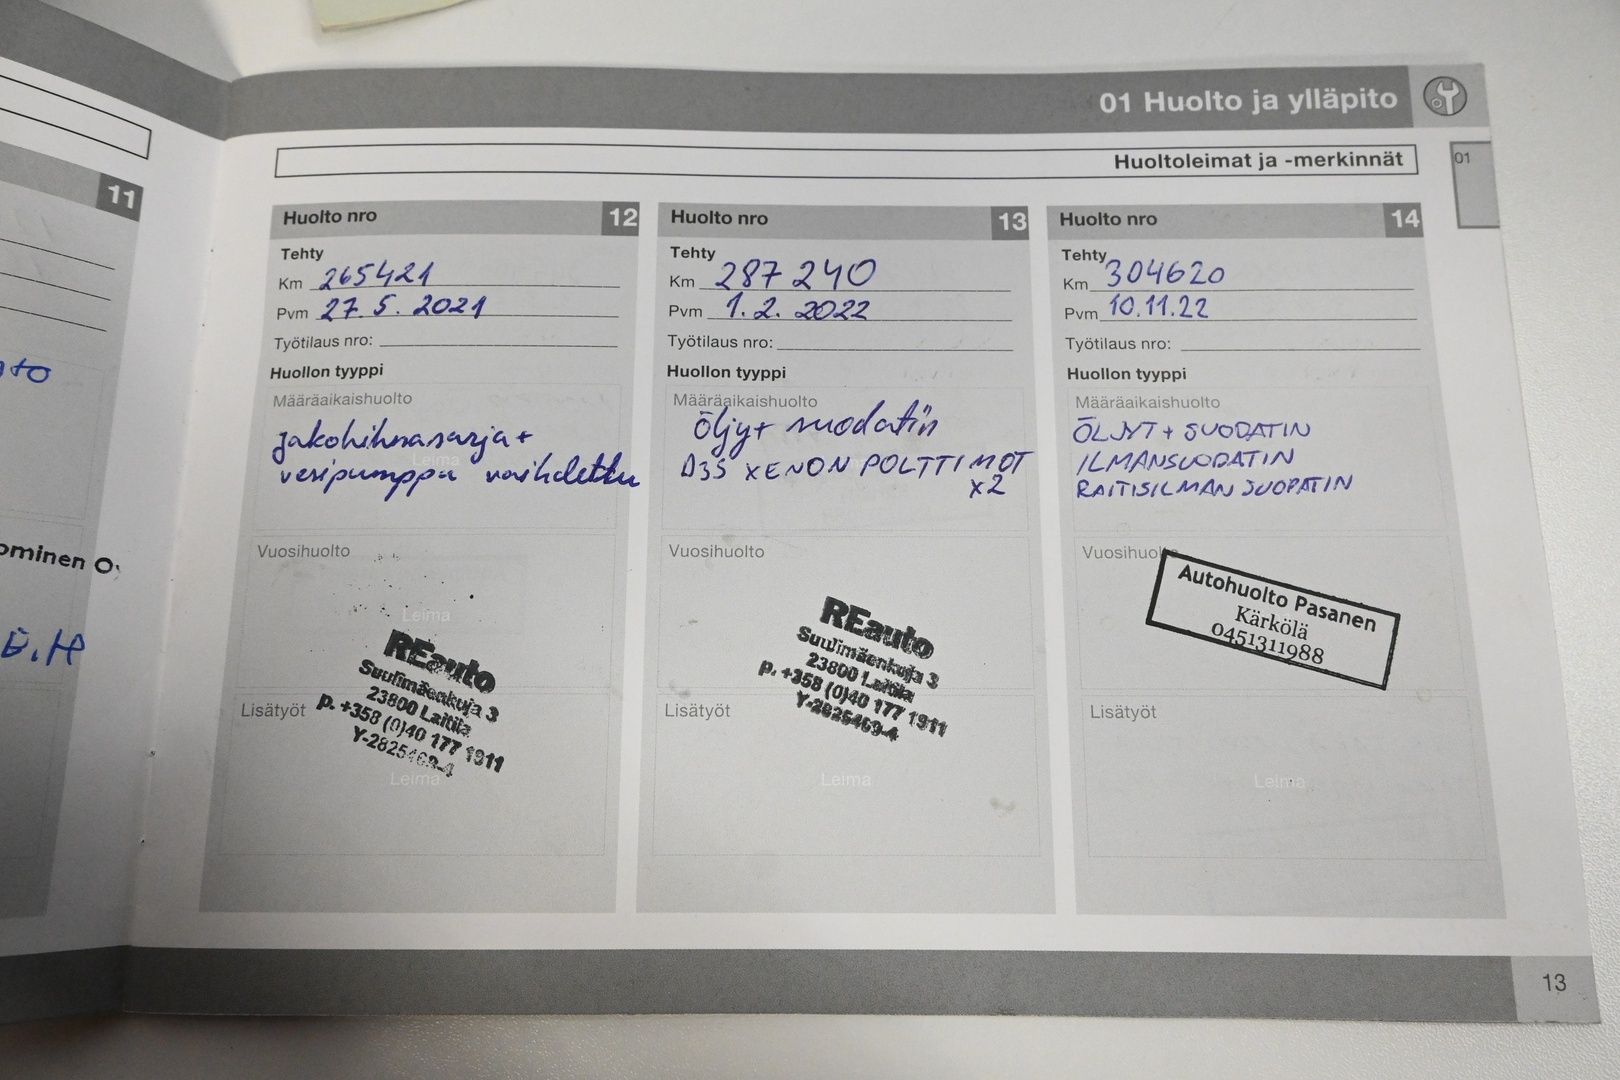 01 Huolto ja ylläpito
Huoltoleimat ja -merkinnät
01
11
Huolto nro 12
Tehty
Km 265421
Pvm 27.5.2021
Työtilaus nro:
Huollon tyyppi
Määräaikaishuolto
jakohihnasarja +
vesipumppu vaihdettu
Leima
Vuosihuolto
Leima
REauto
Suulimäenkuja 3
23800 Laitila
p. +358 (0)40 177 1911
Y-2825469-4
Lisätyöt
Leima
Huolto nro 13
Tehty
Km 287 240
Pvm 1.2.2022
Työtilaus nro:
Huollon tyyppi
Määräaikaishuolto
Öljy + suodatin
D3S XENON POLTTIMOT
x2
Vuosihuolto
REauto
Suulimäenkuja 3
23800 Laitila
p. +358 (0)40 177 1911
Y-2825469-4
Lisätyöt
Leima
Huolto nro 14
Tehty
Km 304620
Pvm 10.11.22
Työtilaus nro:
Huollon tyyppi
Määräaikaishuolto
ÖLJYT + SUODATIN
ILMANSUODATIN
RAITISILMAN SUODATIN
Vuosihuolto
Autohuolto Pasanen
Kärkölä
0451311988
Lisätyöt
Leima
13